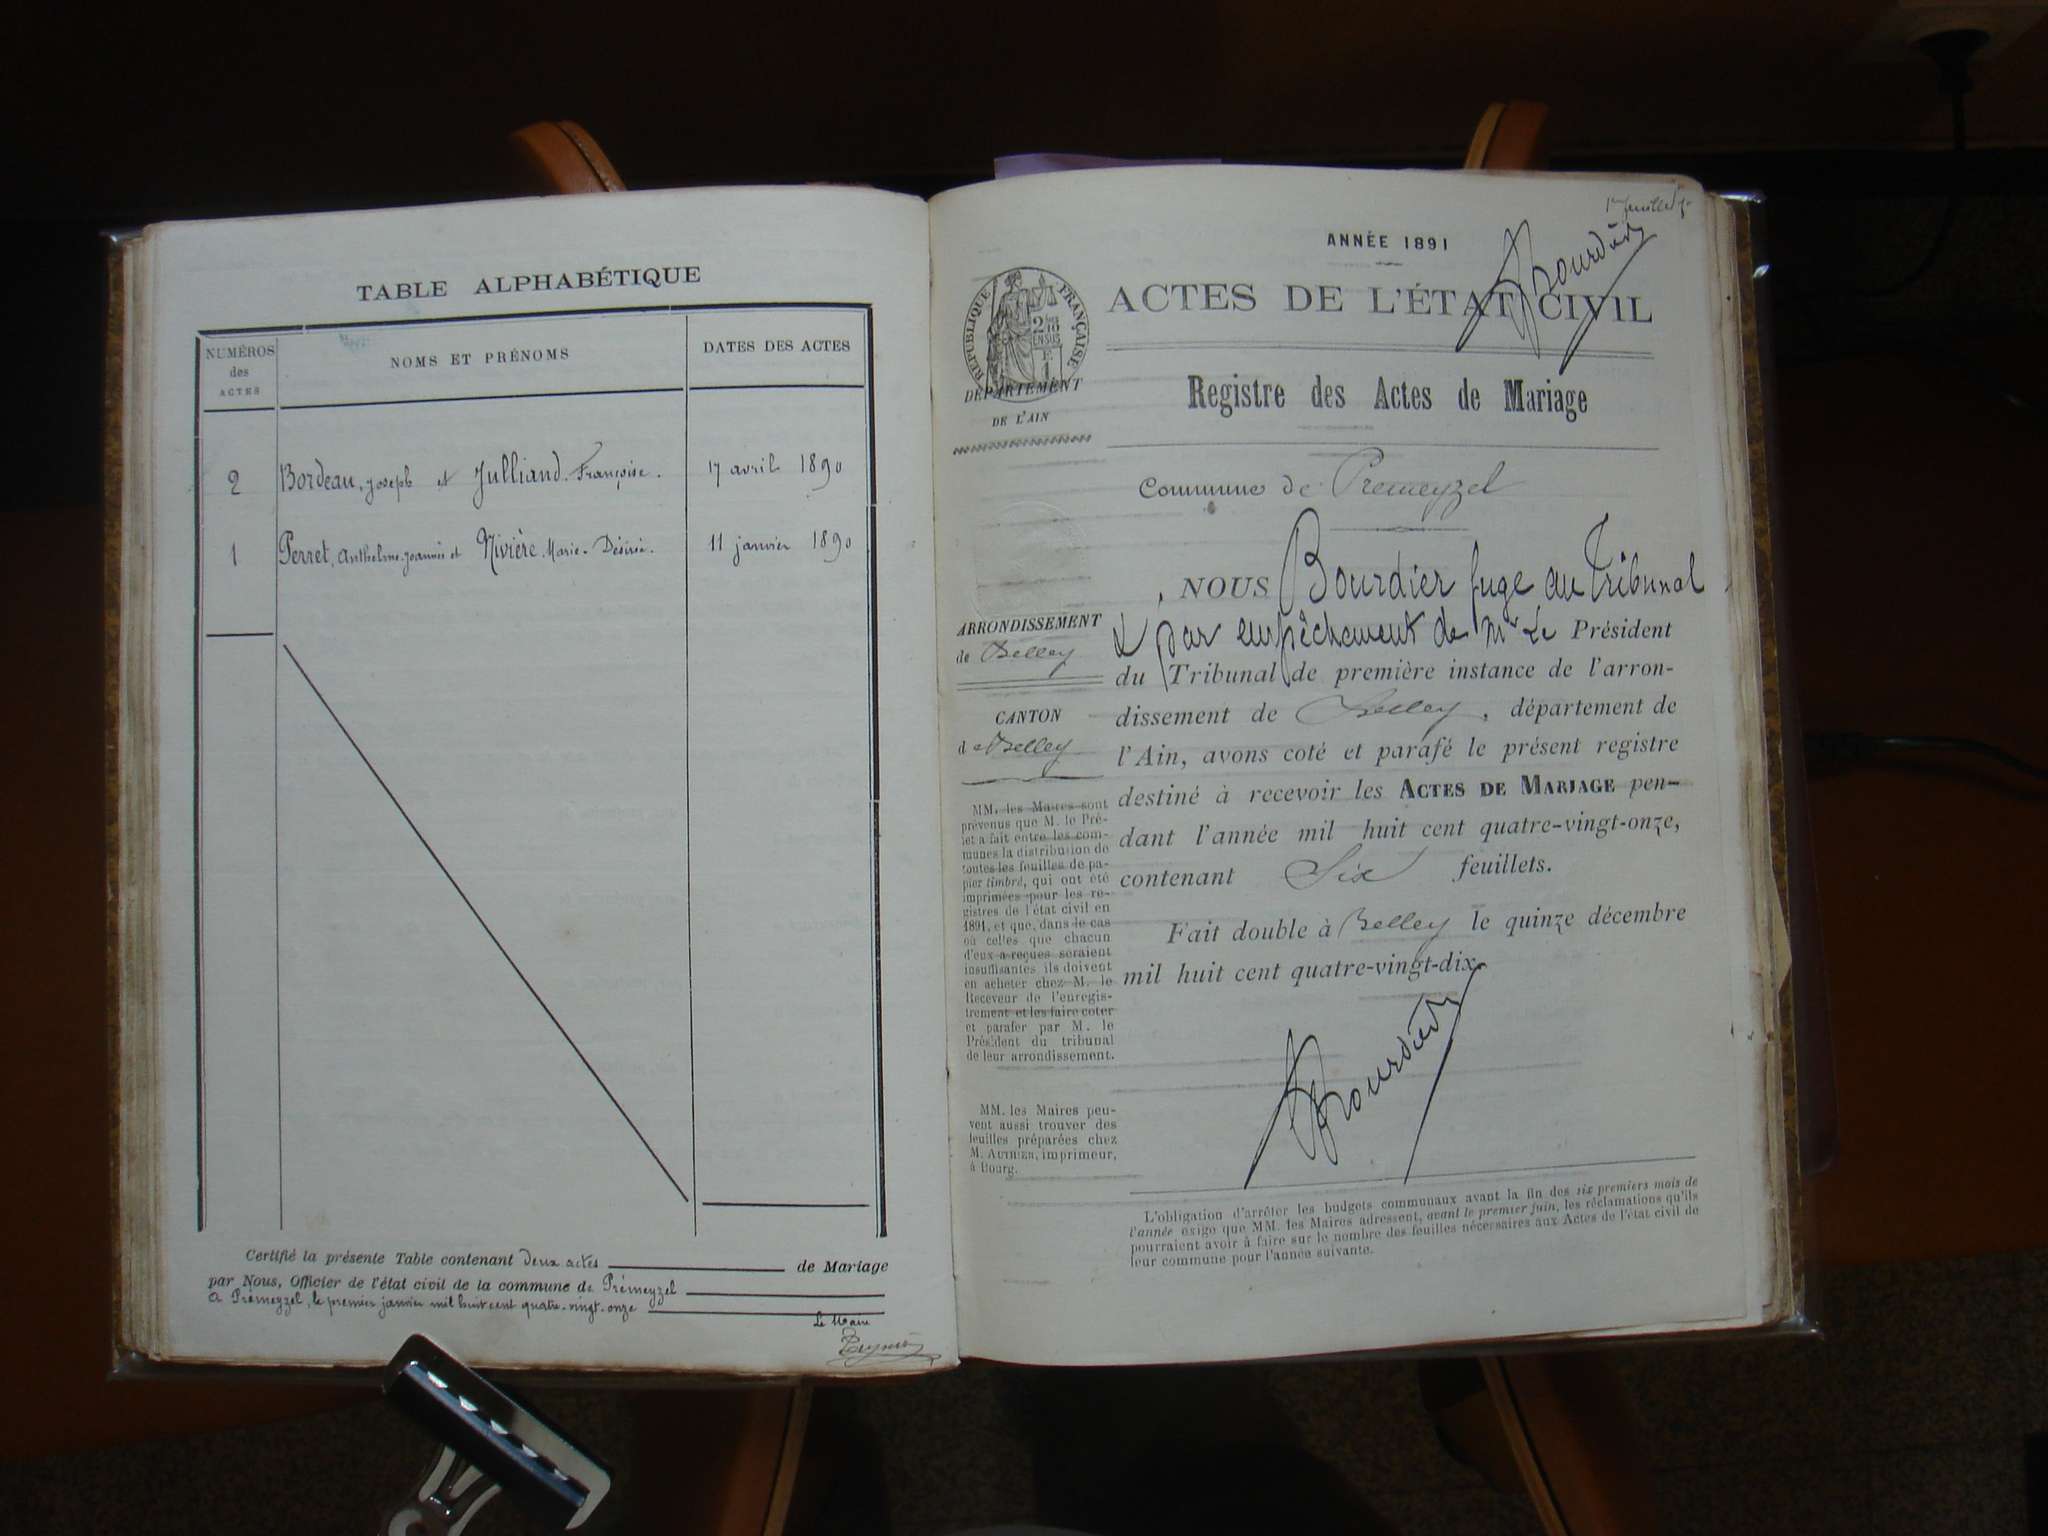 TABLE ALPHABÉTIQUE
NUMÉROS
des
ACTES
NOMS ET PRÉNOMS
DATES DES ACTES
2 Bordeau, Joseph et Julliand Françoise. 17 avril 1890
1 Perret, Anthelme-Joannès et Nivière Marie-Désirée. 11 janvier 1890
Certifié la présente Table contenant deux actes de Mariage
par Nous, Officier de l'état civil de la commune de Prémeyzel
A Prémeyzel, le premier janvier mil huit cent quatre-vingt-onze
Le Maire
1er feuillet
ANNÉE 1891
Bourdier
ACTES DE L'ÉTAT CIVIL
RÉPUBLIQUE FRANÇAISE
DÉPARTEMENT
DE L'AIN
Registre des Actes de Mariage
Commune de Premeyzel
ARRONDISSEMENT
de Belley
CANTON
de Belley
MM. les Maires sont
prévenus que M. le Pré-
fet a fait entre les com-
munes la distribution de
toutes les feuilles de pa-
pier timbré, qui ont été
imprimées pour les re-
gistres de l'état civil en
1891, et que, dans le cas
où celles que chacun
d'eux a reçues seraient
insuffisantes, ils doivent
en acheter chez M. le
Receveur de l'enregis-
trement et les faire coter
et parafer par M. le
Président du tribunal
de leur arrondissement.
MM. les Maires peu-
vent aussi trouver des
feuilles préparées chez
M. AUTHIER, imprimeur,
à Bourg.
NOUS Bourdier juge au Tribunal
& par empêchement de Mr Le Président
du Tribunal de première instance de l'arron-
dissement de Belley, département de
l'Ain, avons coté et parafé le présent registre
destiné à recevoir les ACTES DE MARIAGE pen-
dant l'année mil huit cent quatre-vingt-onze,
contenant Six feuillets.
Fait double à Belley le quinze décembre
mil huit cent quatre-vingt-dix
Bourdier
L'obligation d'arrêter les budgets communaux avant la fin des six premiers mois de
l'année exige que MM. les Maires adressent, avant le premier juin, les réclamations qu'ils
pourraient avoir à faire sur le nombre des feuilles nécessaires aux Actes de l'état civil de
leur commune pour l'année suivante.